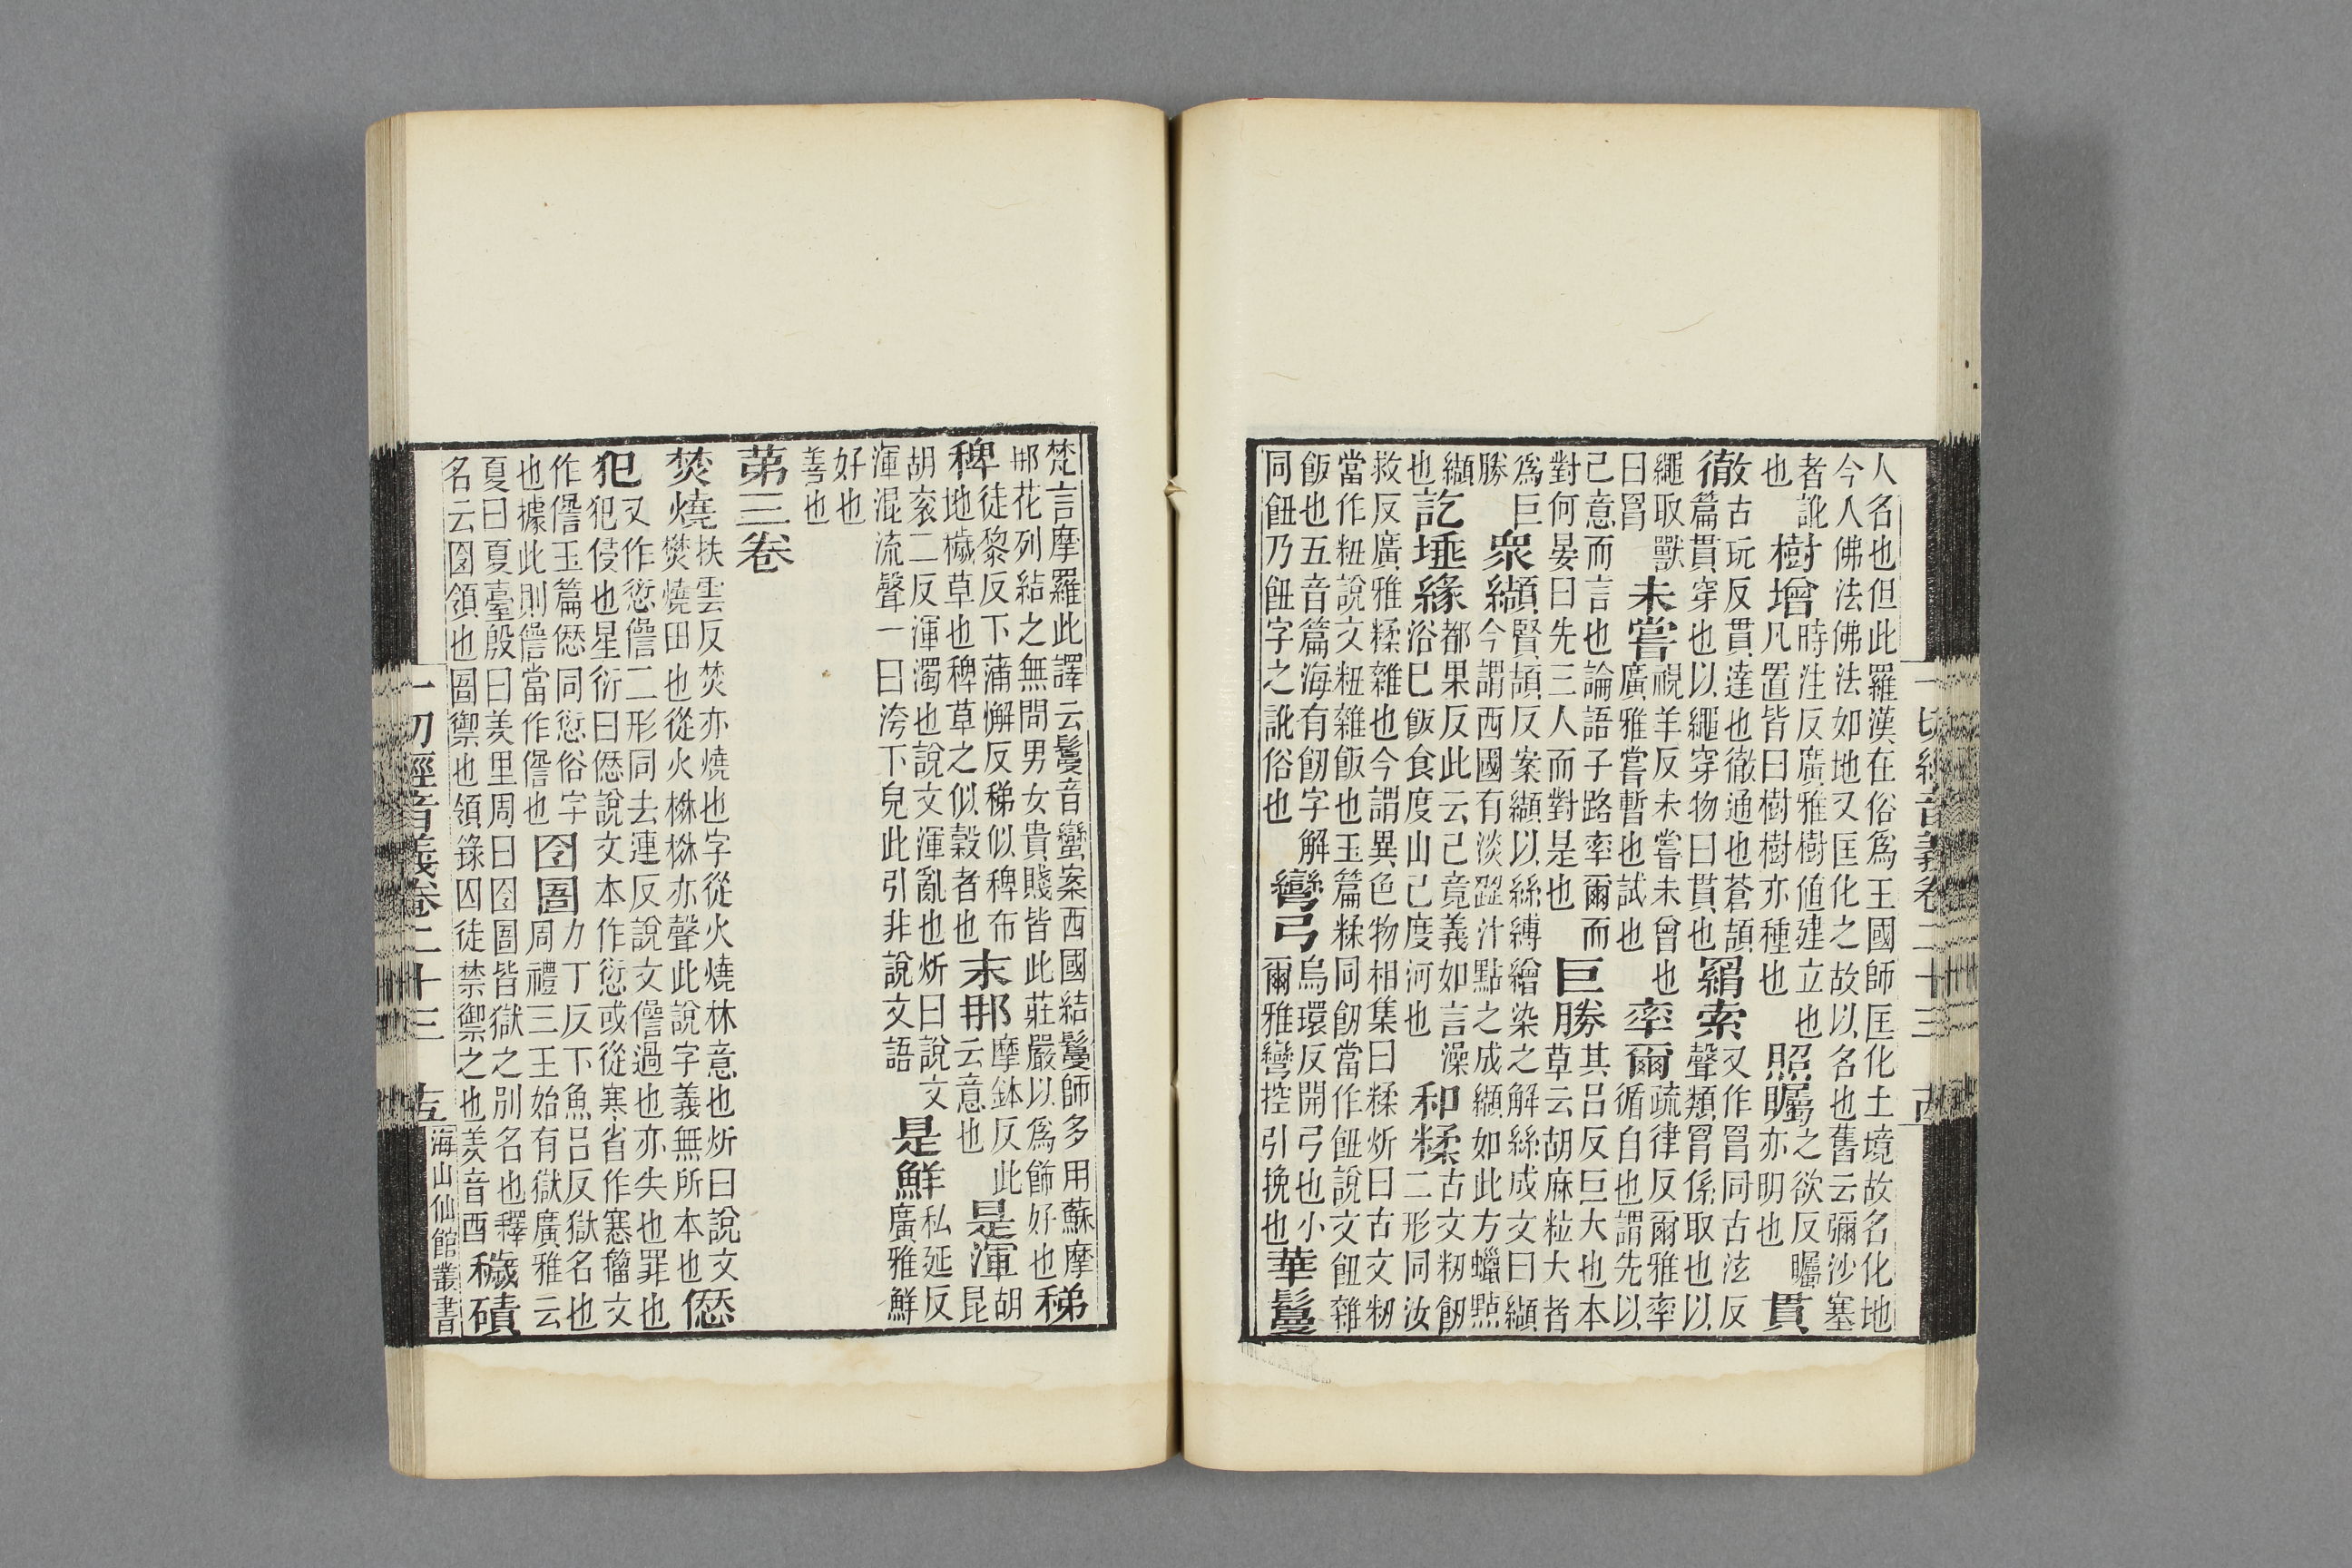 人名也但此羅漢在俗爲王國師匡化土境故名化地
今人佛法佛法如地又匡化之故以名也舊云彌沙塞
者訛
樹增
時注反廣雅樹値建立也
也
凡置皆曰樹樹亦種也
照矚
之欲反矚
亦明也
貫
徹
古玩反貫達也徹通也蒼頡
篇貫穿也以繩穿物曰貫也
羂索
又作罥同古泫反
聲類罥係取也以
繩取獸
曰罥
未嘗
視羊反未嘗未曾也
廣雅嘗暫也試也
率爾
疏律反爾雅率
循自也謂先以
己意而言也論語子路率爾而
對何晏曰先三人而對是也
巨勝
其呂反巨大也本
草云胡麻粒大者
爲巨
勝
衆纈
賢頡反案纈以絲縛繒染之解絲成文曰纈
今謂西國有淡澀汁點之成纈如此方蠟點
纈
也
訖埵緣
都果反此云己竟義如言澡
浴巳飯食度山己度河也
和糅
古文粈䬦
二形同汝
救反廣雅糅雜也今謂異色物相集曰糅炘曰古文粈
當作粈說文粈雜飯也玉篇糅同䬦當作䬔說文䬔雜
飯也五音篇海有䬦字解
同䬔乃䬔字之訛俗也
彎弓
烏環反開弓也小
爾雅彎控引挽也
華鬘
梵言摩羅此譯云鬘音蠻案西國結鬘師多用蘇摩
那花列結之無問男女貴賤皆此莊嚴以爲飾好也
稊
稗
徒黎反下蒲懈反稊似稗布
地穢草也稗草之似穀者也
末那
摩鉢反此
云意也
是渾
胡
昆
胡衮二反渾濁也說文渾亂也炘曰說文
渾混流聲一曰洿下皃此引非說文語
是鮮
私延反
廣雅鮮
好也
善也
苐三卷
焚燒
扶雲反焚亦燒也字從火燒林意也炘曰說文
燓燒田也從火棥棥亦聲此說字義無所本也
僁
犯
又作諐𠎝二形同去連反說文𠎝過也亦失也罪也
犯侵也星衍曰僁說文本作愆或從寒省作㥶籀文
作𠎝玉篇僁同愆俗字
也據此則𠎝當作𠎝也
囹圄
力丁反下魚呂反獄名也
周禮三王始有獄廣雅云
夏曰夏臺殷曰羑里周曰囹圄皆獄之別名也釋
名云囹領也圄禦也領錄囚徒禁禦之也羑音酉
穢磧
一切經音義卷二十三 古
一切經音義卷二十三 𠮷
海山仙館叢書